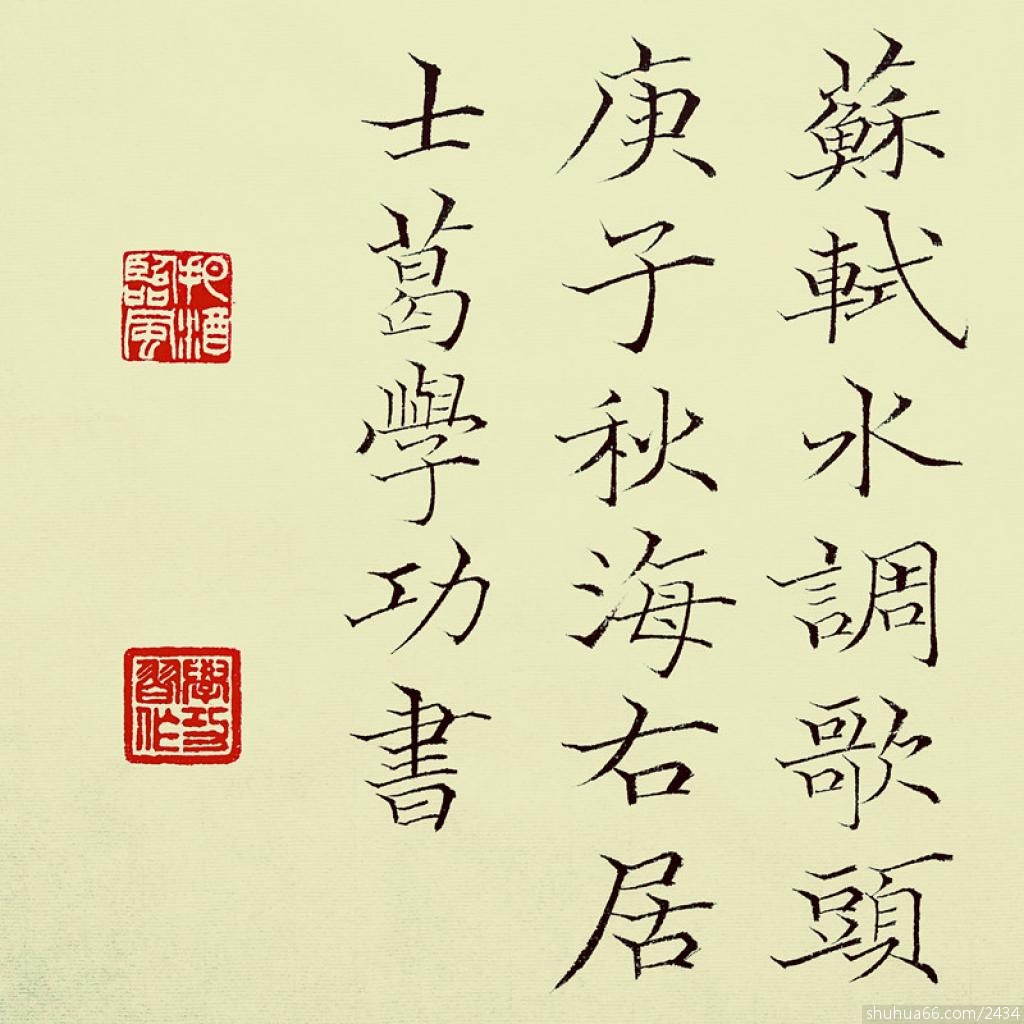 蘇軾水調歌頭
庚子秋海右居
士葛學功書
把酒臨風
學功習作
shuhua66.com/2434